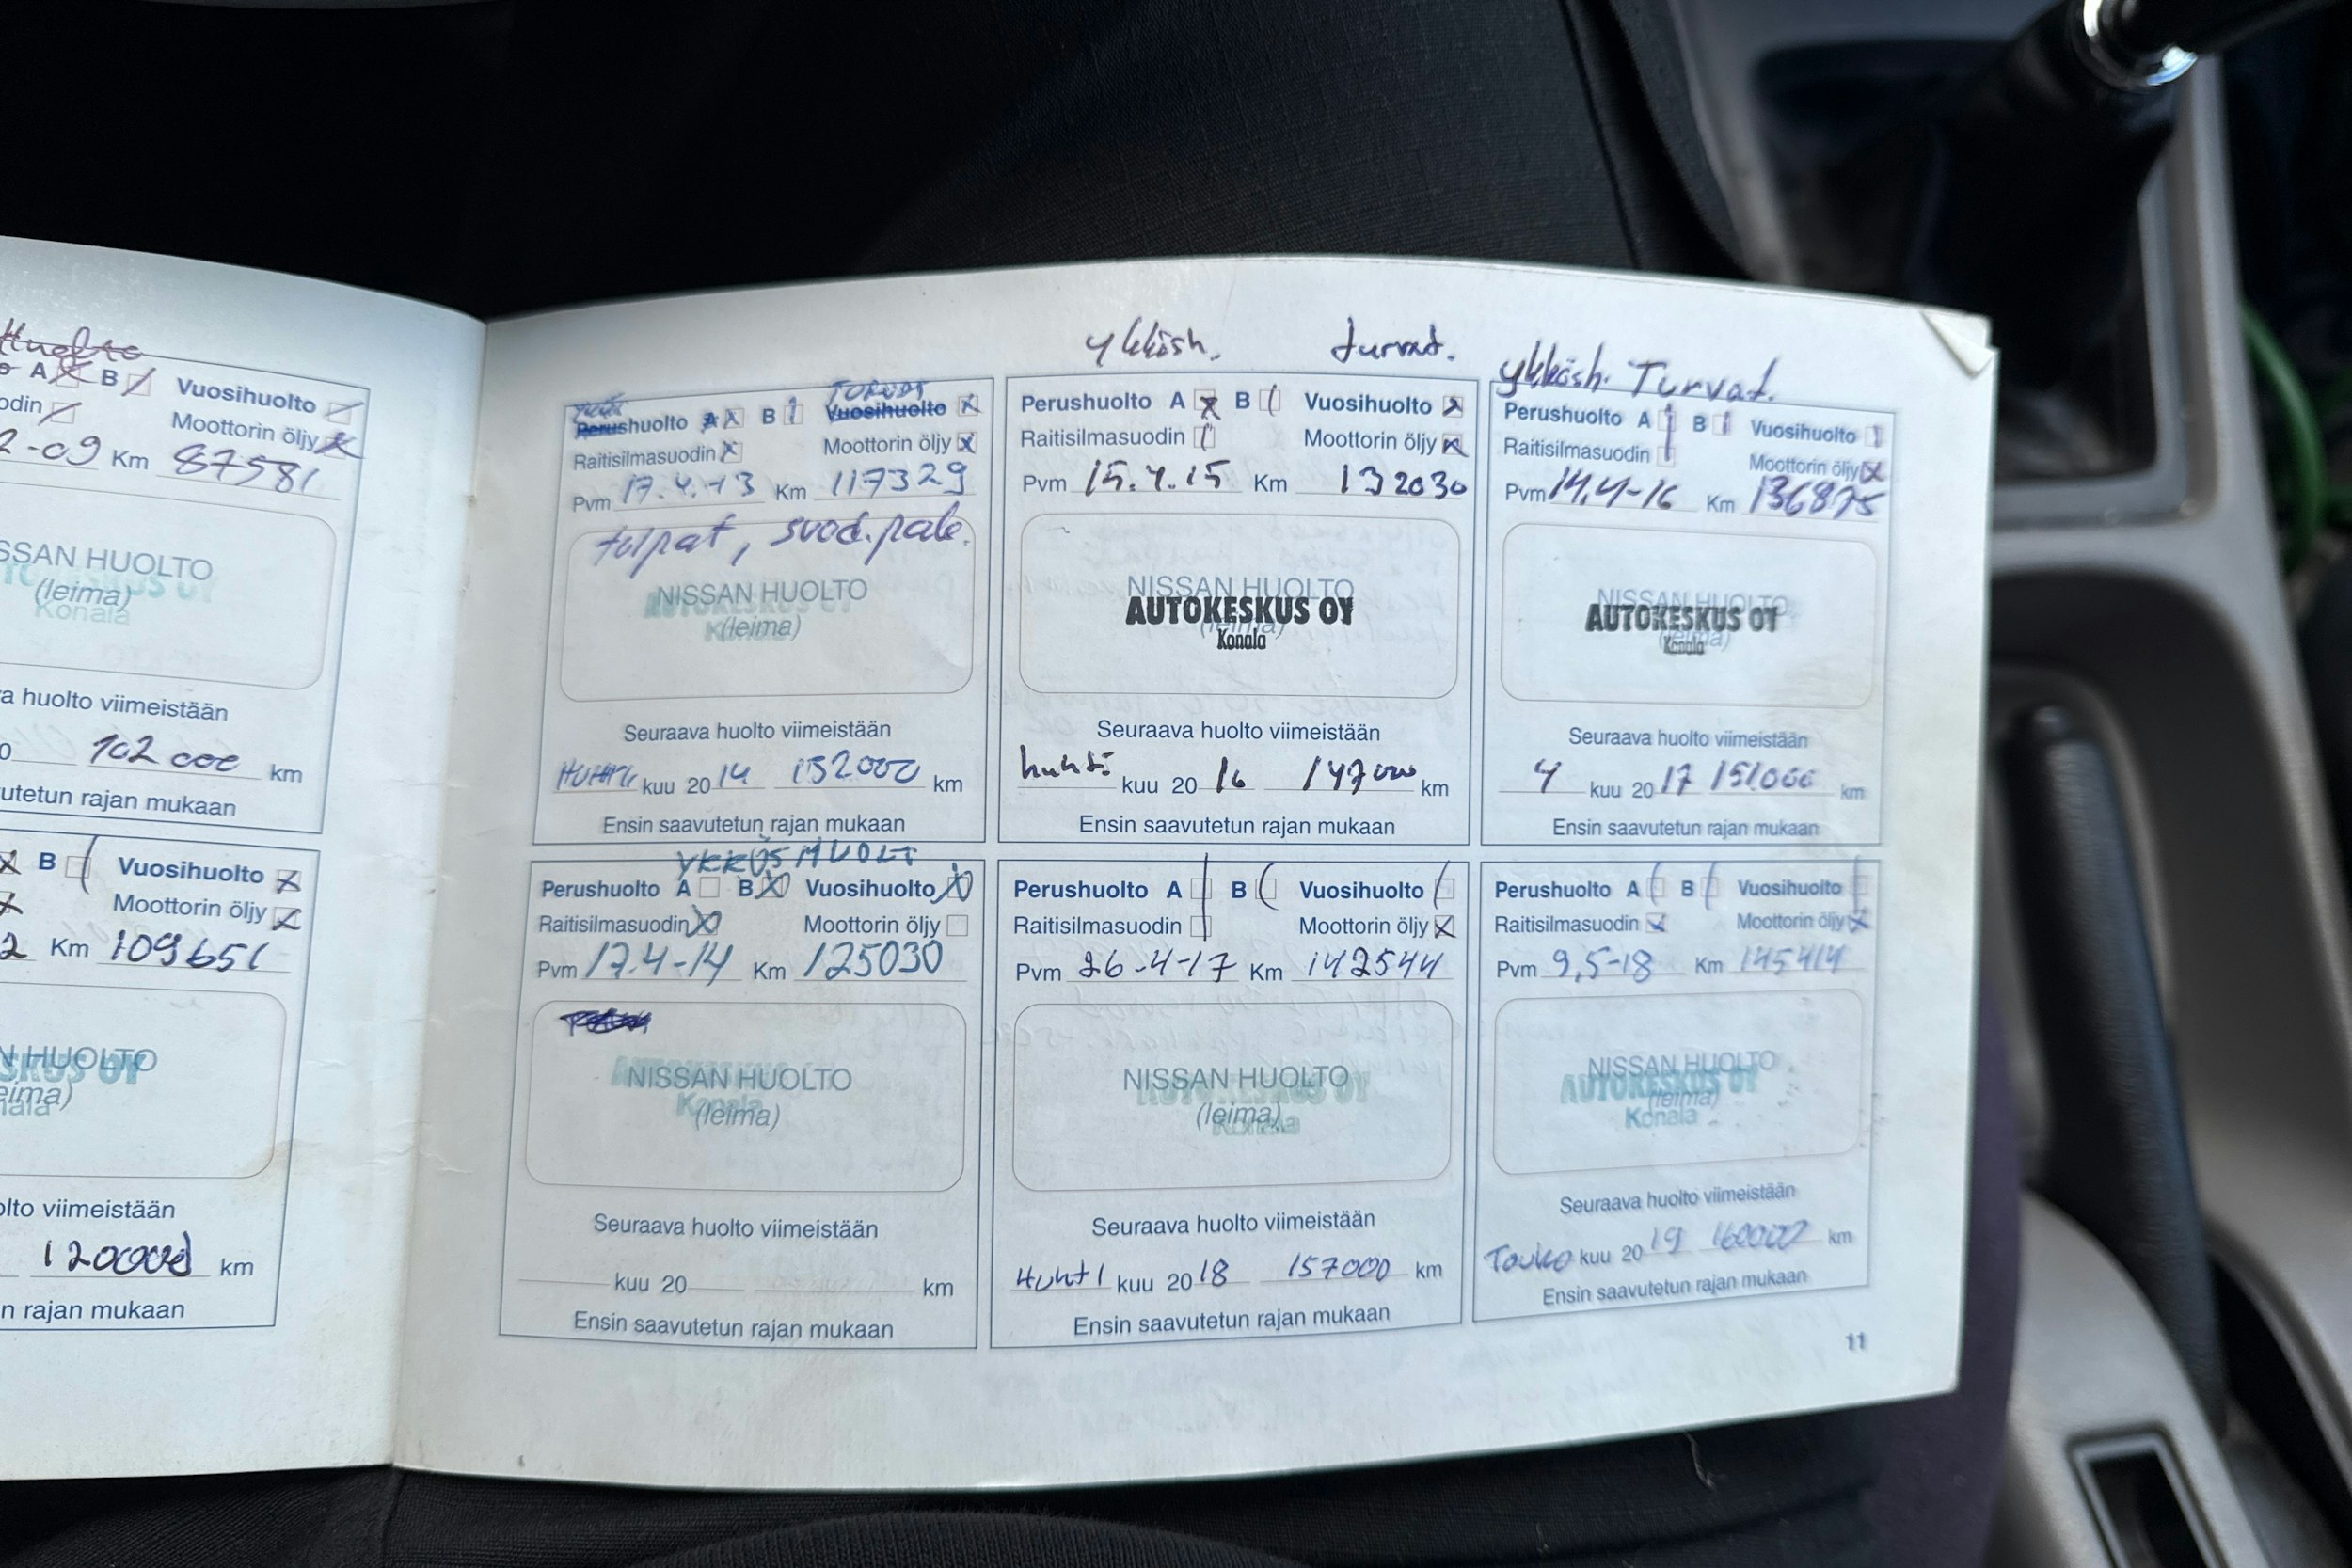 Huolto
A B Vuosihuolto
odin Moottorin öljy
2-09 Km 87581
SSAN HUOLTO
(leima)
Konala
a huolto viimeistään
0 102 000 km
utetun rajan mukaan
B Vuosihuolto
Moottorin öljy
2 Km 109651
N HUOLTO
SKUS OY
eima)
nala
olto viimeistään
120000 km
n rajan mukaan
Perushuolto A B Vuosihuolto
Raitisilmasuodin Moottorin öljy
Pvm 17.4.-13 Km 117329
tulpat, suod.
NISSAN HUOLTO
(leima)
Seuraava huolto viimeistään
HUHTI kuu 20 14 132000 km
Ensin saavutetun rajan mukaan
ykkösh. turvat.
Perushuolto A B Vuosihuolto
Raitisilmasuodin Moottorin öljy
Pvm 15.4.15 Km 132030
NISSAN HUOLTO
AUTOKESKUS OY
(leima)
Konala
Seuraava huolto viimeistään
huhti kuu 20 16 147000 km
Ensin saavutetun rajan mukaan
ykkösh. Turvat.
Perushuolto A B Vuosihuolto
Raitisilmasuodin Moottorin öljy
Pvm 14.4-16 Km 136875
NISSAN HUOLTO
AUTOKESKUS OY
(leima)
Konala
Seuraava huolto viimeistään
4 kuu 20 17 151.000 km
Ensin saavutetun rajan mukaan
YKKÖSHUOLT
Perushuolto A B Vuosihuolto
Raitisilmasuodin Moottorin öljy
Pvm 17.4-14 Km 125030
AUTOKESKUS OY
NISSAN HUOLTO
Konala
(leima)
Seuraava huolto viimeistään
kuu 20 km
Ensin saavutetun rajan mukaan
Perushuolto A B Vuosihuolto
Raitisilmasuodin Moottorin öljy
Pvm 26-4-17 Km 142544
NISSAN HUOLTO
AUTOKESKUS OY
(leima)
Konala
Seuraava huolto viimeistään
Huhti kuu 20 18 157000 km
Ensin saavutetun rajan mukaan
Perushuolto A B Vuosihuolto
Raitisilmasuodin Moottorin öljy
Pvm 9,5-18 Km 145414
NISSAN HUOLTO
AUTOKESKUS OY
(leima)
Konala
Seuraava huolto viimeistään
Touko kuu 20 19 160000 km
Ensin saavutetun rajan mukaan
11